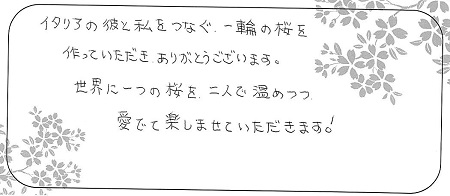 イタリアの彼と私をつなぐ、一輪の桜を
作っていただき、ありがとうございます。
世界に一つの桜を、二人で温めつつ
愛でて楽しませていただきます!